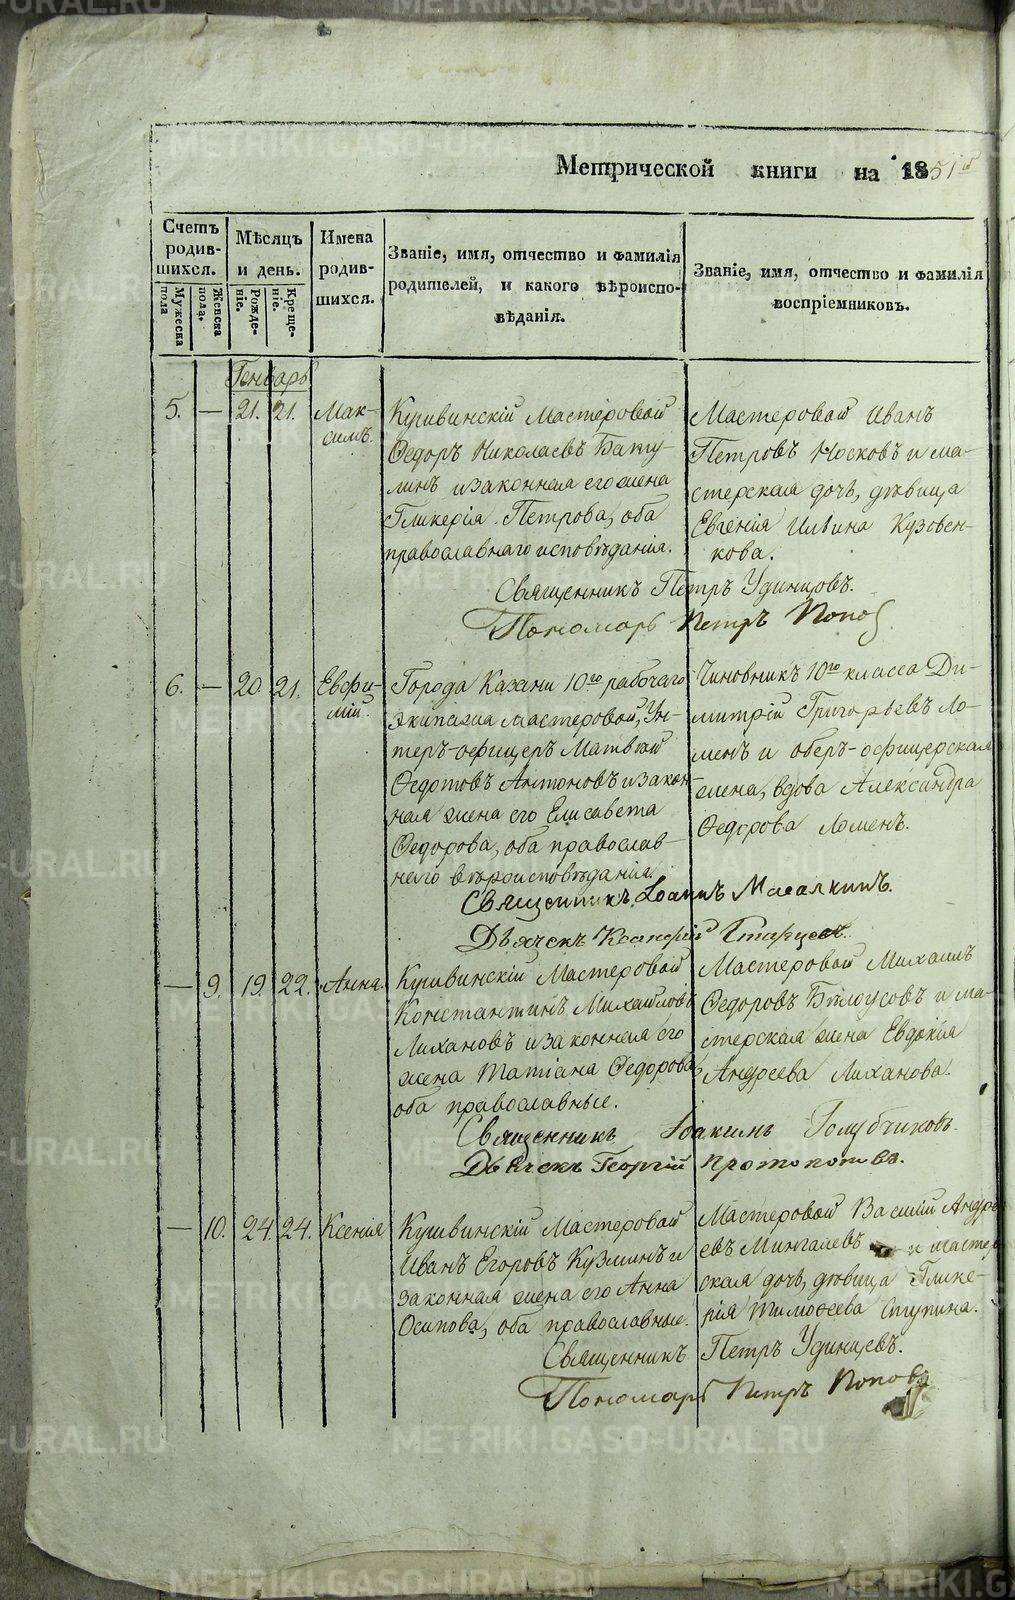 Метрической книги на 1851й
Счетъ родившихся.
Мѣсяцъ и день.
Имена родившихся.
Званіе, имя, отчество и фамилія
родителей, и какого вѣроиспо-
вѣданія.
Званіе, имя, отчество и фамилія
воспріемниковъ.
Мужеска пола
Женска пола.
Рожденіе.
Крещеніе.
Генварь
5. — 21. 21. Мак-
симъ.
Кушвинскій Мастеровой
Ѳедоръ Николаевъ Бату-
линъ и законная его жена
Гликерія Петрова, оба
православнаго исповѣданія.
Мастеровой Иванъ
Петровъ Носковъ и ма-
стерская дочь, дѣвица
Евгенія Ильина Кузовен-
кова.
Священникъ Петръ Удинцовъ.
Пономарь Петръ Поповъ
6. — 20. 21. Евфи-
мій.
Города Казани 10го рабочаго
экипажа мастеровой, Ун-
теръ-офицеръ Матвѣй
Ѳедотовъ Антоновъ и закон-
ная жена его Елисавета
Ѳедорова, оба православ-
наго вѣроисповѣданія.
Чиновникъ 10го класса Ди-
митрій Григорьевъ Ло-
менъ и оберъ-офицерская
жена, вдова Александра
Ѳедорова Ломенъ.
Священникъ Іоаннъ Масалкинъ.
Дьячекъ Ксенофонтъ Старцевъ.
— 9. 19. 22. Анна.
Кушвинскій Мастеровой
Константинъ Михайловъ
Лихановъ и законная его
жена Татіана Ѳедорова
оба православные.
Мастеровой Михаилъ
Ѳедоровъ Бѣлоусовъ и ма-
стерская жена Евдокія
Андреева Лиханова.
Священникъ Іоакимъ Голубчиковъ.
Дьячекъ Георгій Протопоповъ.
— 10. 24. 24. Ксенія
Кушвинскій Мастеровой
Иванъ Егоровъ Кузминъ и
законная жена его Анна
Осипова, оба православные.
Мастеровой Василій Андре
евъ Мингалевъ и мастер
ская дочь, дѣвица Глике-
рія Тимоѳеева Ступина.
Священникъ Петръ Удинцевъ.
Пономарь Петръ Поповъ
METRIKI.GASO-URAL.RU